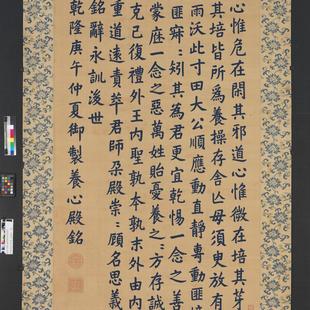 心惟危在閑其邪道心惟微在培其芽
其培皆所爲養操存舍亡毋須臾放有
雨沃此寸田大公順應動直靜專動匪
匪寐〻矧其為君更宜乾惕一念之善
蒙庥一念之惡萬姓貽憂養之〻方存誠
克己復禮外王内聖孰本孰末外由内
重道遠責萃君師朶殿崇〻顧名思義
銘辭永訓後世
乾隆庚午仲夏御製養心殿銘